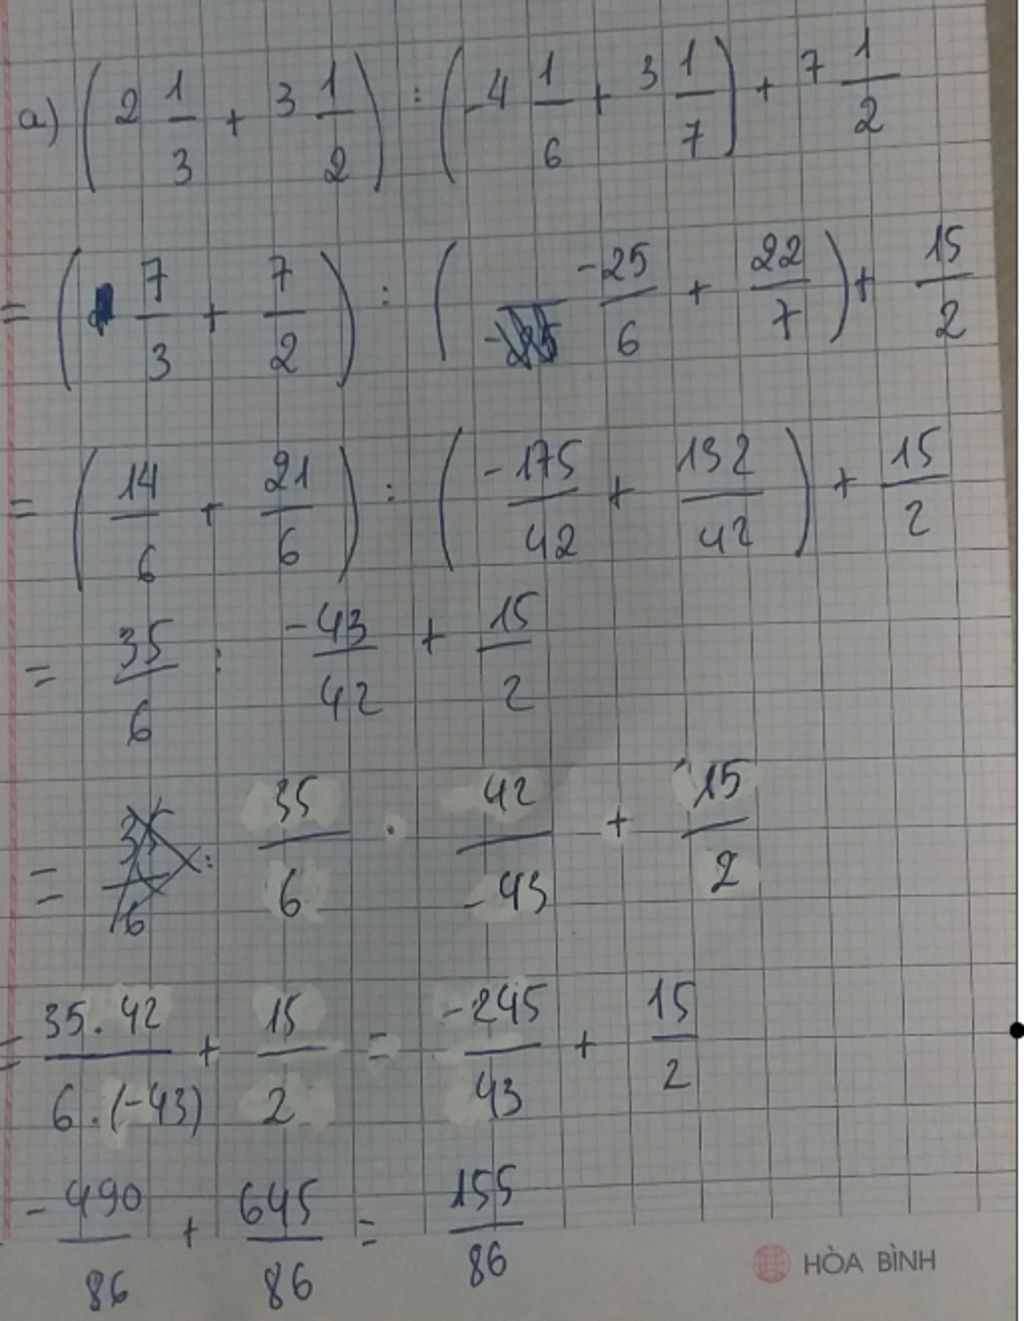 a) (2 1/3 + 3 1/2) : (-4 1/6 + 3 1/7) + 7 1/2
= (7/3 + 7/2) : (-25/6 + 22/7) + 15/2
= (14/6 + 21/6) : (-175/42 + 132/42) + 15/2
= 35/6 : -43/42 + 15/2
= 35/6 : 35/6 . 42/-43 + 15/2
= 35.42/6.(-43) + 15/2 = -245/43 + 15/2
-490/86 + 645/86 = 155/86
HÒA BÌNH